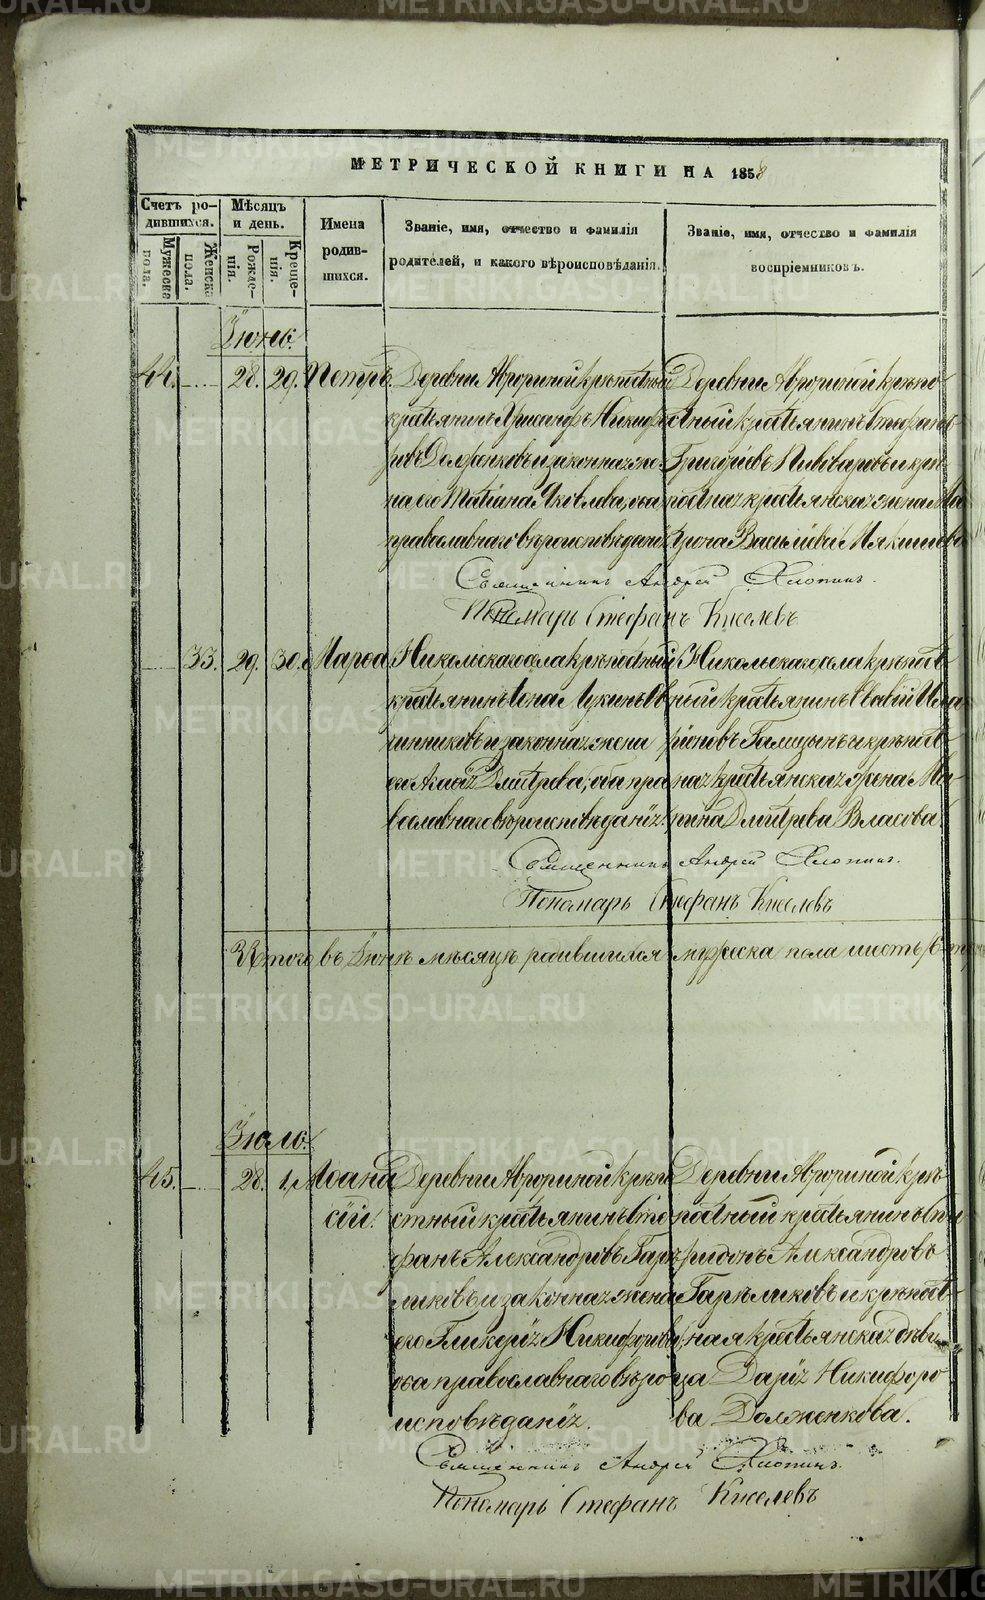 МЕТРИЧЕСКОЙ КНИГИ НА 1858
Счетъ родившихся.
Мужеска пола.
Женска пола.
Мѣсяцъ и день.
Рожденія.
Крещенія.
Имена родившихся.
Званіе, имя, отчество и фамилія
родителей, и какого вѣроисповѣданія.
Званіе, имя, отчество и фамилія
воспріемниковъ.
Іюнь.
44. 28. 29. Петръ.
Деревни крѣпостный
крестьянинъ Хрисанфъ Никифо
ровъ Долженковъ и законная же
на его Татіана Яковлева, оба
православнаго вѣроисповѣданія
Деревни крѣпо
стный крестьянинъ Стефанъ
Григоріевъ Пивоваровъ и крѣ
постная крестьянская жена Ма
трона Васильева Мякишева
Священникъ Андрей Хлопинъ.
Пономарь Стефанъ Киселевъ
33. 29. 30. Марѳа
Никольскаго села крѣпостный
крестьянинъ Іона Лукинъ Ов
чинниковъ и законная жена
его Димитріева, оба пра
вославнаго вѣроисповѣданія
Никольскаго села крѣпост
ный крестьянинъ
ріоновъ Галицынъ и крѣпост
ная крестьянская жена Ма
рина Дмитріева Власова.
Священникъ Андрей Хлопинъ.
Пономарь Стефанъ Киселевъ
Итого въ Іюнѣ мѣсяцѣ родившихся мужеска пола шесть
Іюль.
45. 28. 1. Аѳана
сій.
Деревни крѣпо
стный крестьянинъ Сте
фанъ Александровъ Гарк
ликовъ и законная жена
его Гликерія Никифорова,
оба православнаго вѣро
исповѣданія.
Деревни крѣ
постный крестьянинъ Спи
ридонъ Александровъ
и крѣпост
ная крестьянская дѣви
ца Дарія Никифоро
ва Долженкова.
Священникъ Андрей Хлопинъ.
Пономарь Стефанъ Киселевъ
METRIKI.GASO-URAL.RU